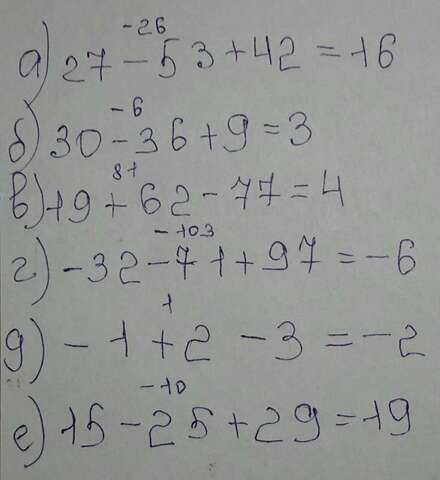 -26
а) 27-53+42=16
-6
б) 30-36+9=3
81
в) 19+62-77=4
-103
г) -32-71+97=-6
1
д) -1+2-3=-2
-10
е) 15-25+29=19